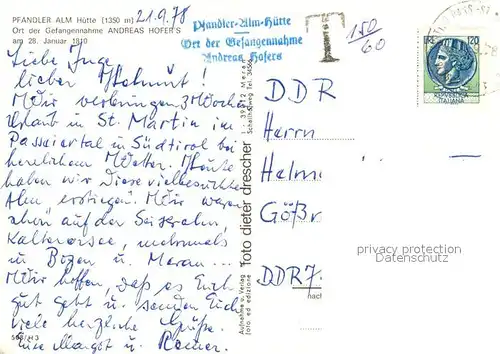 PFANDLER ALM Hütte [1350 m] 21.9.78
Ort der Gefangennahme ANDREAS HOFER'S
am 28. Januar 1810
Pfandler-Alm-Hütte
Ort der Gefangennahme
Andreas Hofers
T 150/60
120
ITALIANA
Liebe Inge,
lieber Helmut!
Wir verbringen 3 Wochen
Urlaub in St. Martin im
Passeiertal in Südtirol bei
herrlichem Wetter. Heute
haben wir diese vielbesuchte
Alm erstiegen. Wir waren
schon auf der Seiseralm,
Kalterersee, mehrmals
in Bozen u. Meran...
Wir hoffen, daß es Euch
gut geht u. senden Euch
viele herzliche Grüße.
Eure Margot u. Reiner.
Aufnahme u. Verlag
foto ed edizione
foto dieter drescher
DDR
Herrn
Helm
Göß
DDR 7
privacy protection
Datenschutz